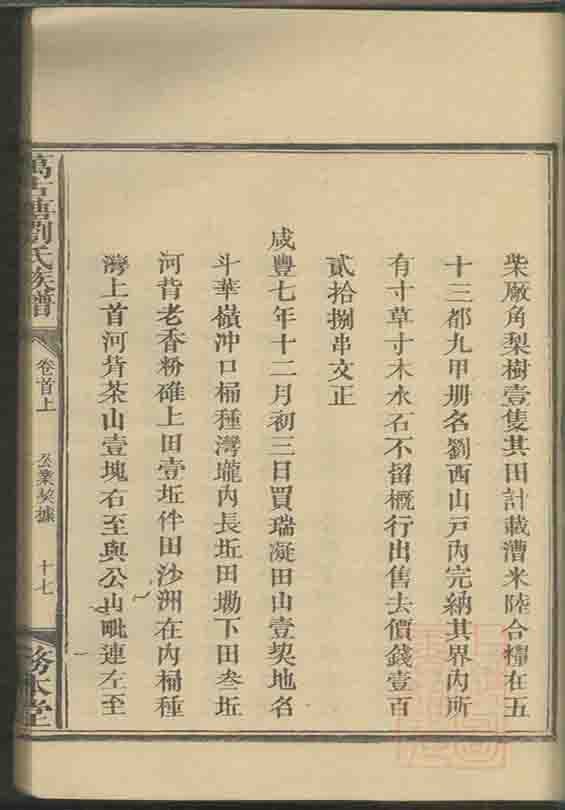 柴廠角梨樹壹隻其田計載漕米陸合糧在五
十三都九甲册名劉西山戸內完納其界內所
有寸草寸木水石不留概行出售去價錢壹百
貳拾捌串文正
咸豐七年十二月初三日買瑞凝田山壹契地名
斗華嶺冲口桶種灣壠內長坵田墈下田叁坵
河背老香粉碓上田壹坵伴田沙洲在內桶種
灣上首河背茶山壹塊右至與公山毗連左至
萬古塘劉氏族譜
卷首上
公業契據
十七
務本堂